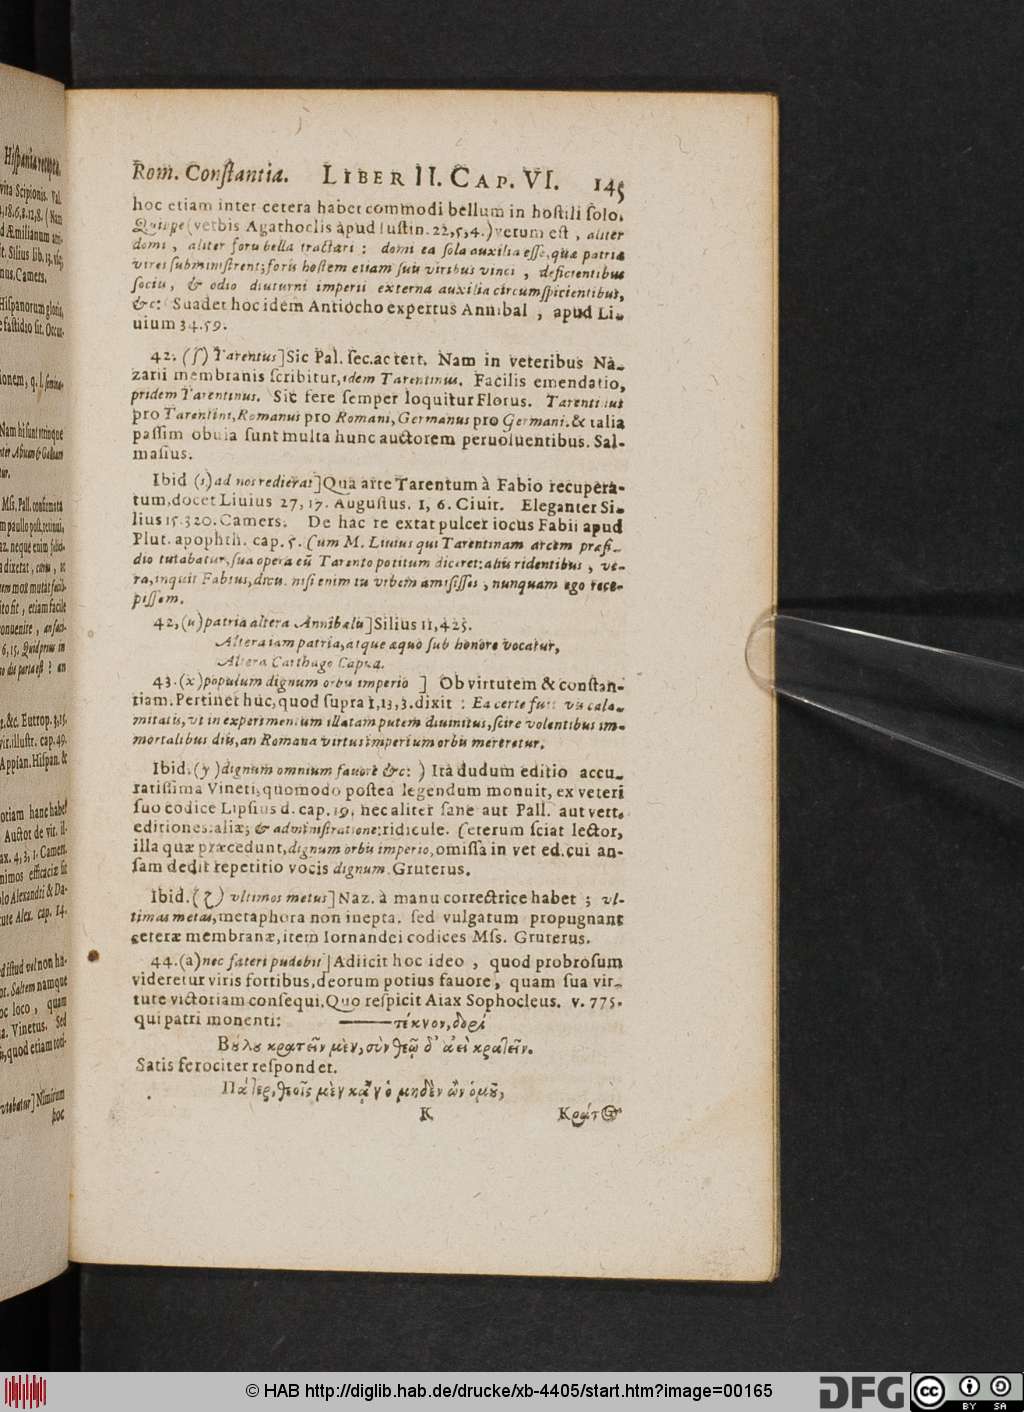 Hiſpania recepta.
vita Scipionis. Val.
nus, Camers.
Hiſpanorum gloria,
e faſtidio ſit. Occur-
Nam hi ſunt utrinque
Mſs. Pall. confirmata
Appian. Hiſpan. &
otiam hanc habet
Auctor de vir. il-
cute Alex. cap. 14.
d iſtud vel non ha-
oc loco, quam
a. Vinetus. Sed
s, quod etiam toti-
vtebatur] Nimirum
hoc
Rom. Conſtantia. LIBER II. CAP. VI. 145
hoc etiam inter cetera habet commodi bellum in hoſtili ſolo.
Quippe (verbis Agathoclis apud Iuſtin. 22,5,4.) verum eſt, aliter
domi, aliter foris bella tractari: domi ea ſola auxilia eſſe, quæ patriæ
vires ſubminiſtrent; foris hoſtem etiam ſuis viribus vinci, deficientibus
ſociis, & odio diuturni imperii externa auxilia circumſpicientibus,
&c: Suadet hoc idem Antiocho expertus Annibal, apud Li-
uium 34.59.
42. (ſ) Tarentus] Sic Pal. ſec. ac tert. Nam in veteribus Na-
zarii membranis ſcribitur, idem Tarentinus. Facilis emendatio,
pridem Tarentinus. Sic fere ſemper loquitur Florus. Tarentinus
pro Tarentini, Romanus pro Romani, Germanus pro Germani. & talia
paſſim obuia ſunt multa hunc auctorem peruoluentibus. Sal-
maſius.
Ibid (t) ad nos redierat] Qua arte Tarentum à Fabio recupera-
tum, docet Liuius 27, 17. Auguſtus. 1, 6. Ciuit. Eleganter Si-
lius 15.320. Camers. De hac re extat pulcer iocus Fabii apud
Plut. apophth. cap. 5. Cum M. Liuius qui Tarentinam arcem præſi-
dio tutabatur, ſua opera eũ Tarento potitum diceret: aliis ridentibus, ve-
ra, inquit Fabius, dicis. niſi enim tu vrbem amiſiſſes, nunquam ego rece-
piſſem.
42, (u) patria altera Annibalis] Silius 11, 423.
Altera iam patria, atque æquo ſub honore vocatur,
Altera Carthago Capua.
43. (x) populum dignum orbis imperio ] Ob virtutem & conſtan-
tiam. Pertinet huc, quod ſupra 1, 13, 3. dixit: Ea certe fuit vis cala-
mitatis, vt in experimentum illatam putem diuinitus, ſcire volentibus im-
mortalibus diis, an Romana virtus imperium orbis mereretur.
Ibid. (y) dignum omnium fauore &c: ) Ita dudum editio accu-
ratiſſima Vineti, quomodo poſtea legendum monuit, ex veteri
ſuo codice Lipſius d. cap. 19. nec aliter ſane aut Pall. aut vett.
editiones: aliæ; & adminiſtratione: ridicule. Ceterum ſciat lector,
illa quæ præcedunt, dignum orbis imperio, omiſſa in vet ed. cui an-
ſam dedit repetitio vocis dignum. Gruterus.
Ibid. (z) vltimos metus] Naz. à manu correctrice habet; vl-
timas metas, metaphora non inepta. ſed vulgatum propugnant
ceteræ membranæ, item Iornandei codices Mſs. Gruterus.
44. (a) nec fateri pudebit] Adiicit hoc ideo, quod probroſum
videretur viris fortibus, deorum potius fauore, quam ſua vir-
tute victoriam conſequi. Quo reſpicit Aiax Sophocleus. v. 775.
qui patri monenti: —— τέκνον, δορὶ
Βούλου κρατεῖν μὲν, σὺν θεῷ δ' ἀεὶ κρατεῖν.
Satis ferociter reſpondet.
Πάτερ, θεοῖς μὲν κἂν ὁ μηδὲν ὢν ὁμοῦ,
K Κράτος
© HAB http://diglib.hab.de/drucke/xb-4405/start.htm?image=00165
DFG
cc
BY SA